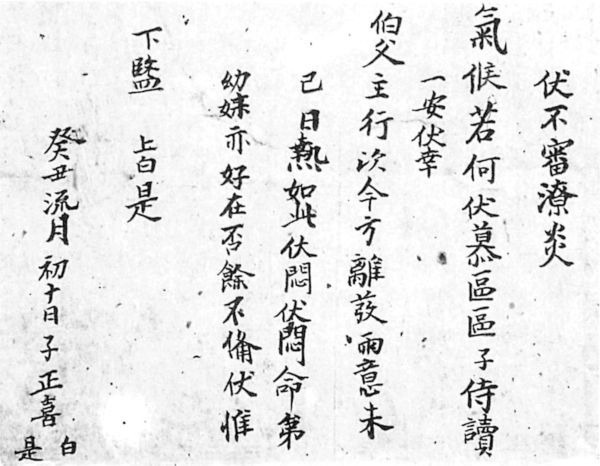 伏不審潦炎
氣候若何伏慕區區子侍讀
一安伏幸
伯父主行次今方離發雨意未
已日熱如此伏悶伏悶命第
幼妹亦好在否餘不備伏惟
下鑒 上白是
癸丑流月初十日子正喜白
是